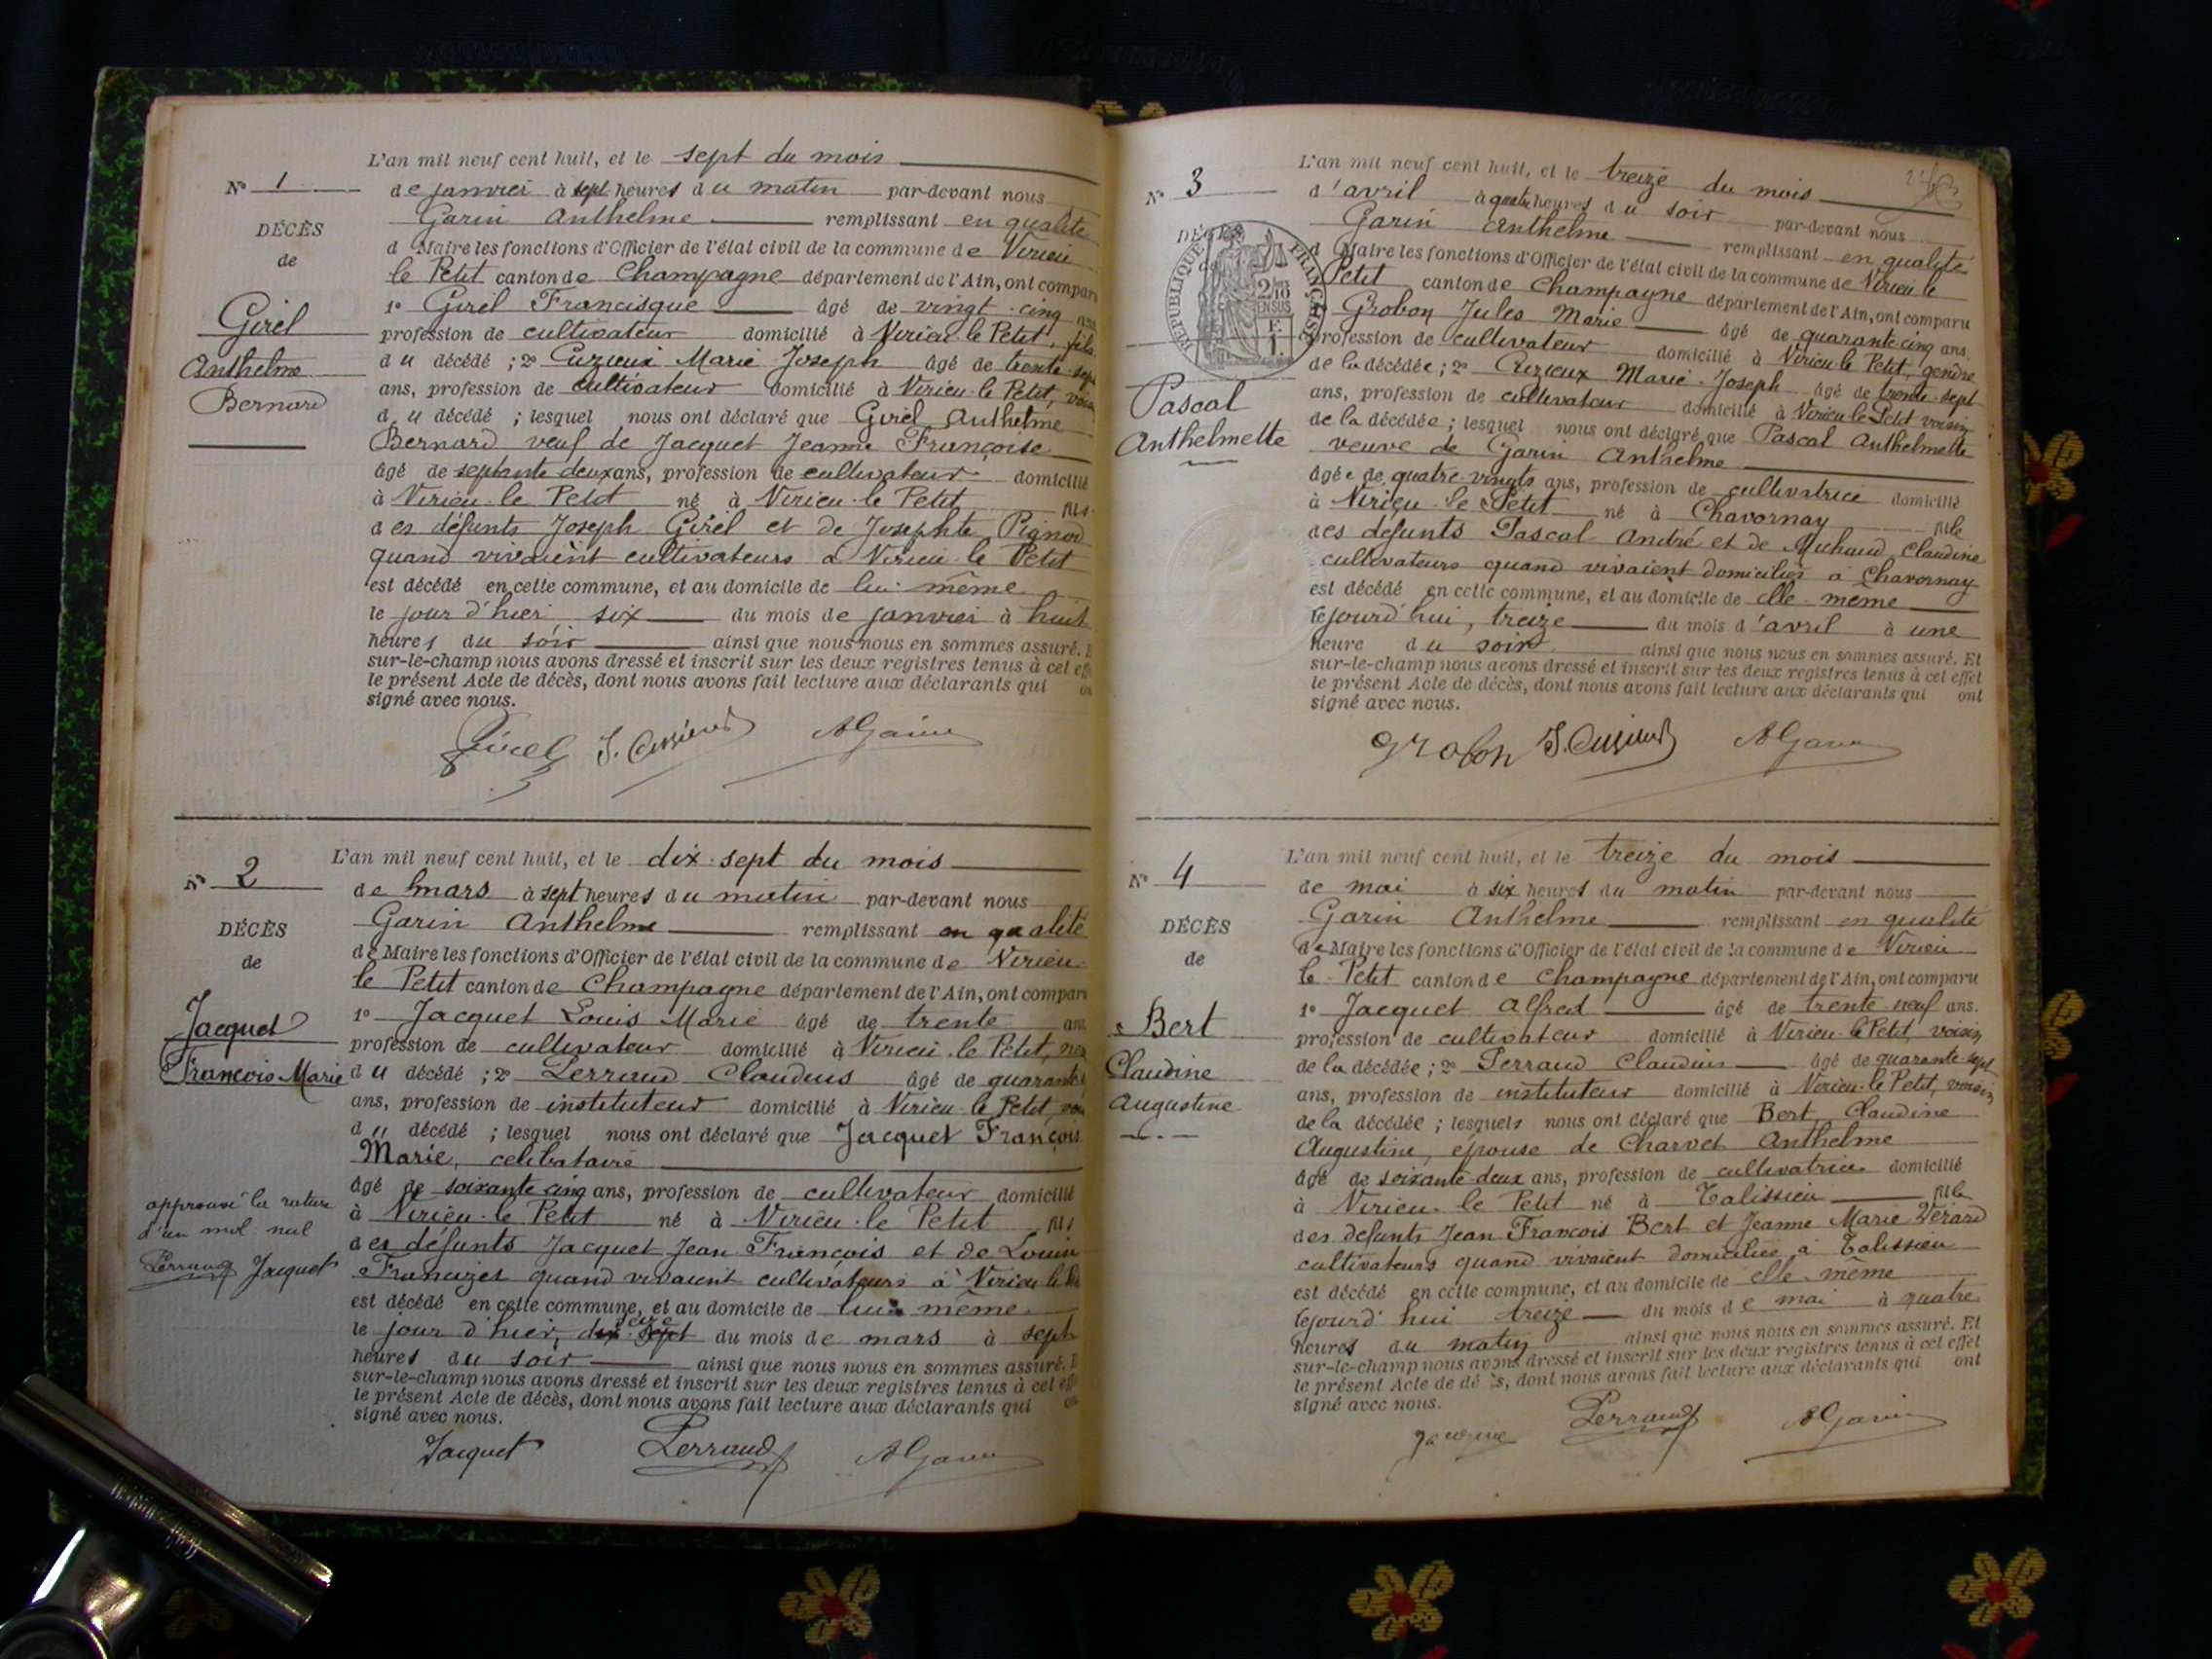 L'an mil neuf cent huit, et le sept du mois
N° 1
de janvier à sept heures du matin par-devant nous
Garin Anthelme remplissant en qualité
DÉCÈS
de
d Maire les fonctions d'Officier de l'état civil de la commune de Virieu
le Petit canton de Champagne département de l'Ain, ont compar
1° Girel Francisque âgé de vingt-cinq ans
Girel
Anthelme
Bernard
profession de cultivateur domicilié à Virieu-le-Petit, fils
du décédé ; 2° Cuzieux Marie Joseph âgé de trente-sept
ans, profession de cultivateur domicilié à Virieu-le-Petit, voisin
du décédé ; lesquel nous ont déclaré que Girel Anthelme
Bernard veuf de Jacquet Jeanne Françoise
âgé de septante deux ans, profession de cultivateur domicilié
à Virieu-le-Petit né à Virieu-le-Petit fils
des défunts Joseph Girel et de Josephte Pignod
quand vivaient cultivateurs à Virieu-le-Petit
est décédé en cette commune, et au domicile de lui-même
le jour d'hier six du mois de janvier à huit
heures du soir ainsi que nous nous en sommes assuré. E
sur-le-champ nous avons dressé et inscrit sur les deux registres tenus à cet eff
le présent Acte de décès, dont nous avons fait lecture aux déclarants qui on
signé avec nous.
Girel J. Cuzieux AGarin
L'an mil neuf cent huit, et le dix-sept du mois
N° 2
de mars à sept heures du matin par-devant nous
Garin Anthelme remplissant en qualité
DÉCÈS
de
de Maire les fonctions d'Officier de l'état civil de la commune de Virieu
le Petit canton de Champagne département de l'Ain, ont compar
1° Jacquet Louis Marie âgé de trente ans
Jacquet
François-Marie
profession de cultivateur domicilié à Virieu-le-Petit, nev
du décédé ; 2° Perraud Claudius âgé de quarante
ans, profession de instituteur domicilié à Virieu-le-Petit, voi
du décédé ; lesquel nous ont déclaré que Jacquet François
Marie, celibataire
âgé de soixante cinq ans, profession de cultivateur domicilié
approuvé la rature
d'un mot nul
Perraud Jacquet
à Virieu-le-Petit né à Virieu-le-Petit fils
des défunts Jacquet Jean-François et de Louise
quand vivaient cultivateurs à Virieu-le-Petit
est décédé en cette commune, et au domicile de lui-même
le jour d'hier, dix-sept seize du mois de mars à sept
heures du soir ainsi que nous nous en sommes assuré. E
sur-le-champ nous avons dressé et inscrit sur les deux registres tenus à cet eff
le présent Acte de décès, dont nous avons fait lecture aux déclarants qui on
signé avec nous.
Jacquet Perraud AGarin
L'an mil neuf cent huit, et le treize du mois
N° 3
d'avril à quatre heures du soir par-devant nous
Garin Anthelme remplissant en qualité
DÉCÈS
RÉPUBLIQUE FRANÇAISE
2/10
EN SUS
d Maire les fonctions d'Officier de l'état civil de la commune de Virieu le
Petit canton de Champagne département de l'Ain, ont comparu
Grobon Jules Marie âgé de quarante cinq ans
profession de cultivateur domicilié à Virieu-le-Petit, gendre
de la décédée ; 2° Cuzieux Marie-Joseph âgé de trente-sept
Pascal
Anthelmette
ans, profession de cultivateur domicilié à Virieu-le-Petit voisin
de la décédée ; lesquel nous ont déclaré que Pascal Anthelmette
veuve de Garin Anthelme
âgée de quatre-vingts ans, profession de cultivatrice domicilié
à Virieu-le-Petit né à Chavornay fille
des défunts Pascal André et de Michaud Claudine
cultivateurs quand vivaient domiciliés à Chavornay
est décédé en cette commune, et au domicile de elle-même
le jourd'hui, treize du mois d'avril à une
heure du soir ainsi que nous nous en sommes assuré. Et
sur-le-champ nous avons dressé et inscrit sur les deux registres tenus à cet effet
le présent Acte de décès, dont nous avons fait lecture aux déclarants qui ont
signé avec nous.
Grobon J. Cuzieux AGarin
L'an mil neuf cent huit, et le treize du mois
N° 4
de mai à six heures du matin par-devant nous
Garin Anthelme remplissant en qualité
DÉCÈS
de
de Maire les fonctions d'Officier de l'état civil de la commune de Virieu
le-Petit canton de Champagne département de l'Ain, ont comparu
1° Jacquet Alfred âgé de trente neuf ans.
Bert
Claudine
Augustine
profession de cultivateur domicilié à Virieu-le-Petit, voisin
de la décédée ; 2° Perraud Claudius âgé de quarante-sept
ans, profession de instituteur domicilié à Virieu-le-Petit, voisin
de la décédée ; lesquels nous ont déclaré que Bert Claudine
Augustine, épouse de Charvet Anthelme
âgé de soixante-deux ans, profession de cultivatrice domicilié
à Virieu-le-Petit né à Talissieu fille
des défunts Jean François Bert et Jeanne Marie
cultivateurs quand vivaient domiciliés à Talissieu
est décédé en cette commune, et au domicile de elle-même
le jourd'hui treize du mois de mai à quatre
heures du matin ainsi que nous nous en sommes assuré. Et
sur-le-champ nous avons dressé et inscrit sur les deux registres tenus à cet effet
le présent Acte de décès, dont nous avons fait lecture aux déclarants qui ont
signé avec nous.
Jacquet Perraud AGarin